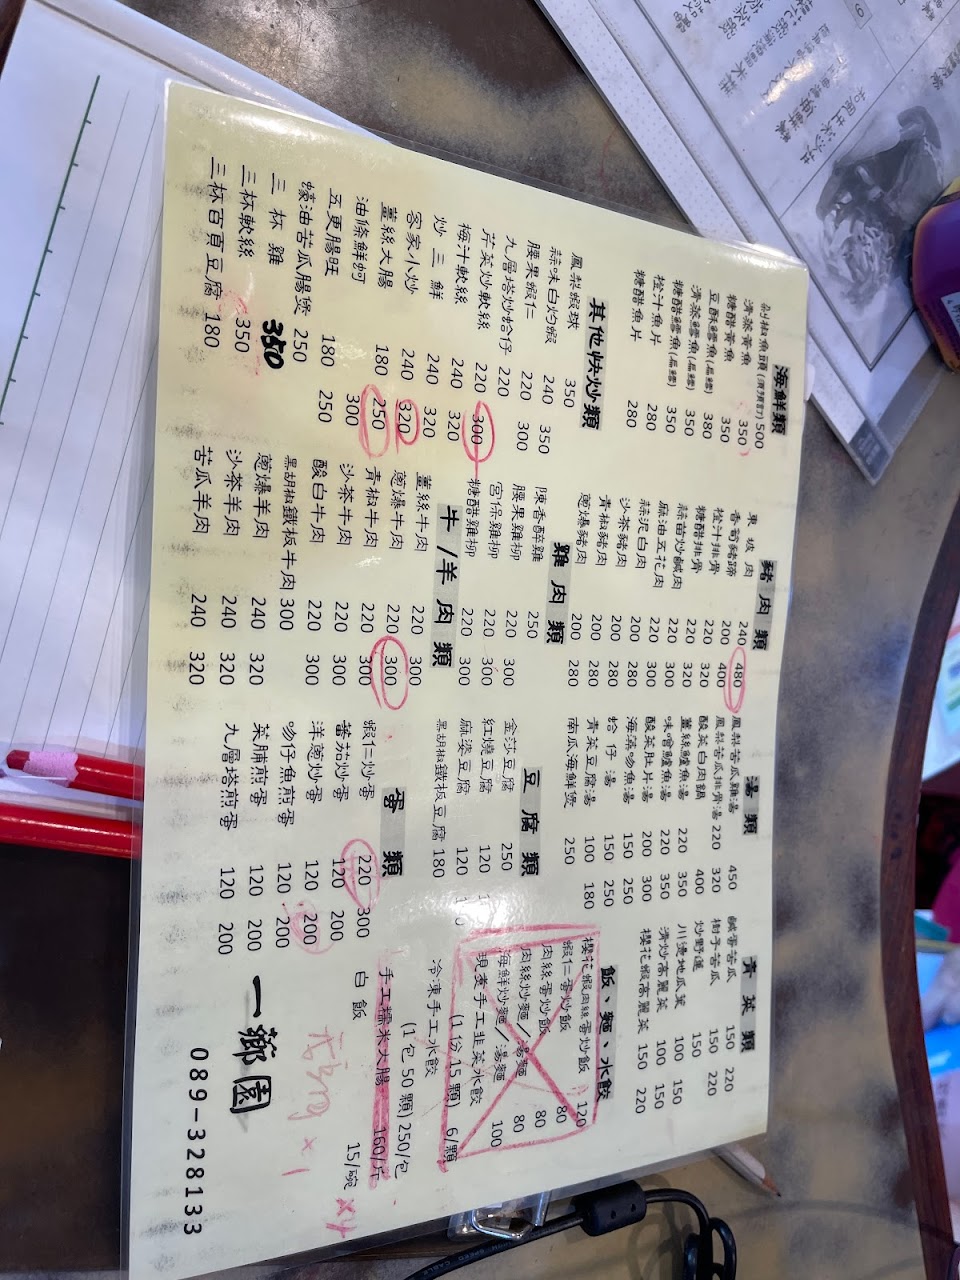 海鮮類
剁椒魚頭(須預訂) 500
清蒸黃魚 350
糖醋黃魚 350
豆酥鱈魚(扁鱈) 380
清蒸鱈魚(扁鱈) 350
糖醋鱈魚(扁鱈) 350
橙汁魚片 280
糖醋魚片 280
其他快炒類
鳳梨蝦球 350
蒜味白灼蝦 240 350
腰果蝦仁 220 300
九層塔炒蛤仔 220
芹菜炒軟絲 220 300
梅汁軟絲 240 320
炒三鮮 240 320
客家小炒 240 320
薑絲大腸 180 250
油條鮮蚵 300
五更腸旺 180 250
蠔油苦瓜腸煲 250
三杯雞 350
三杯軟絲 350
三杯百頁豆腐 180
豬肉類
東坡肉 240 480
香筍豬蹄 200 400
橙汁排骨 220 320
糖醋排骨 220 320
蒜苗炒鹹肉 220 320
麻油五花肉 220 300
蒜泥白肉 200 280
沙茶豬肉 200 280
青椒豬肉 200 280
蔥爆豬肉 200 280
雞肉類
陳香醉雞 250
腰果雞柳 220 300
宮保雞柳 220 300
糖醋雞柳 220 300
牛/羊肉類
薑絲牛肉 220 300
蔥爆牛肉 220 300
青椒牛肉 220 300
沙茶牛肉 220 300
酸白牛肉 220 300
黑胡椒鐵板牛肉 300
蔥爆羊肉 240 320
沙茶羊肉 240 320
苦瓜羊肉 240 320
湯類
鳳梨苦瓜雞湯 450
鳳梨苦瓜排骨湯 220 320
酸菜白肉鍋 400
薑絲鱸魚湯 220 350
味噌鱸魚湯 220 350
酸菜肚片湯 200 300
海藻吻魚湯 150 250
蛤仔湯 150 250
青菜豆腐湯 100 180
南瓜海鮮煲 250
豆腐類
金莎豆腐 250
紅燒豆腐 120
麻婆豆腐 120
黑胡椒鐵板豆腐 180
蛋類
蝦仁炒蛋 220 300
蕃茄炒蛋 120 200
洋蔥炒蛋 120 200
吻仔魚煎蛋 120 200
菜脯煎蛋 120 200
九層塔煎蛋 120 200
青菜類
鹹蛋苦瓜 150 220
樹子苦瓜 150 220
炒野蓮 150
川燙地瓜葉 100 150
清炒高麗菜 100 150
櫻花蝦高麗菜 150 220
飯、麵、水餃
櫻花蝦肉絲蛋炒飯 120
蝦仁蛋炒飯 80
肉絲蛋炒飯 80
肉絲炒麵/湯麵 80
海鮮炒麵/湯麵 100
現煮手工韭菜水餃
(1份15顆) 6/顆
冷凍手工水餃
(1包50顆) 250/包
手工糯米大腸 160/斤
白飯 15/碗 x4
x1
一鄉園
089-328133